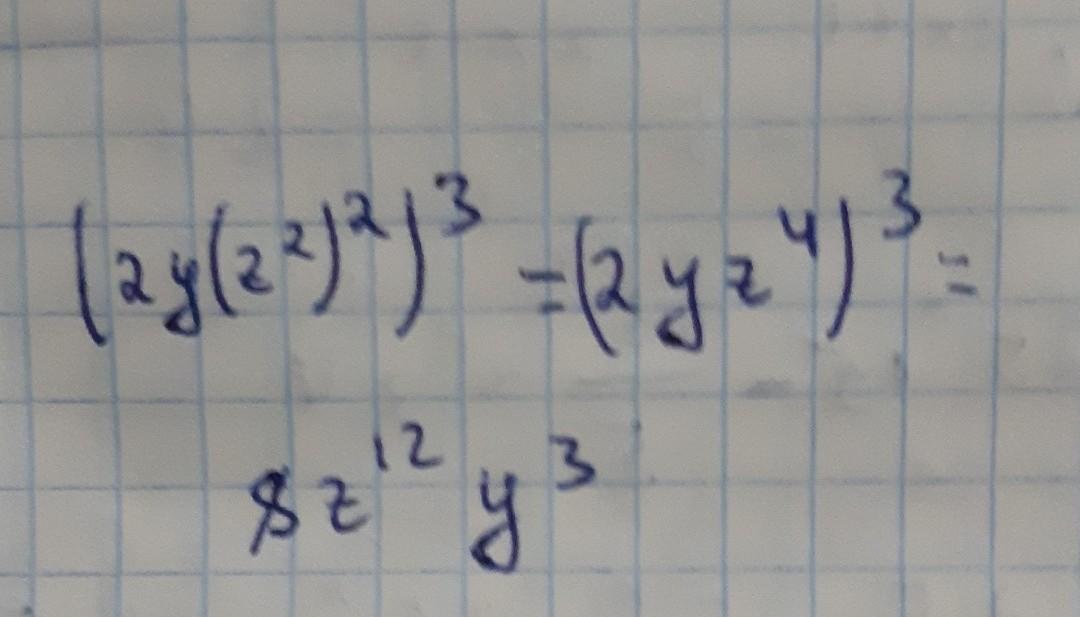 (2y(z²)²)³ = (2yz⁴)³ =
8z¹²y³